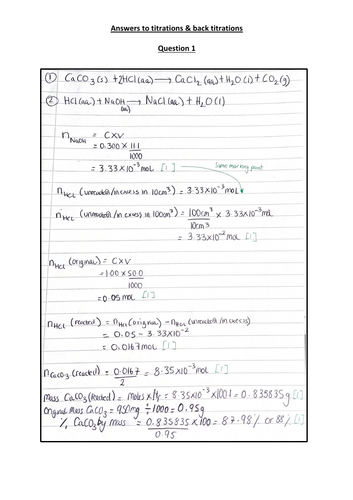 Answers to titrations & back titrations
Question 1
① CaCO3(s) + 2HCl(aq) → CaCl2(aq) + H2O(l) + CO2(g)
② HCl(aq) + NaOH(aq) → NaCl(aq) + H2O(l)
nNaOH = C×V
= 0.300 × 11.1/1000
= 3.33×10⁻³ mol [1]
Same marking point
nHCl (unreacted/in excess in 10cm³) = 3.33×10⁻³ mol
nHCl (unreacted/in excess in 100cm³) = 100cm³/10cm³ × 3.33×10⁻³ mol
= 3.33×10⁻² mol [1]
nHCl (original) = C×V
= 1.00 × 50.0/1000
= 0.05 mol [1]
nHCl (reacted) = nHCl(original) - nHCl(unreacted/in excess)
= 0.05 - 3.33×10⁻²
= 0.0167 mol [1]
nCaCO3 (reacted) = 0.0167/2 = 8.35×10⁻³ mol [1]
Mass CaCO3 (reacted) = moles × Mr = 8.35×10⁻³ × 100.1 = 0.835835g [1]
Original mass CaCO3 = 950mg ÷ 1000 = 0.95g
% CaCO3 by mass = 0.835835/0.95 × 100 = 87.98% or 88% [1]